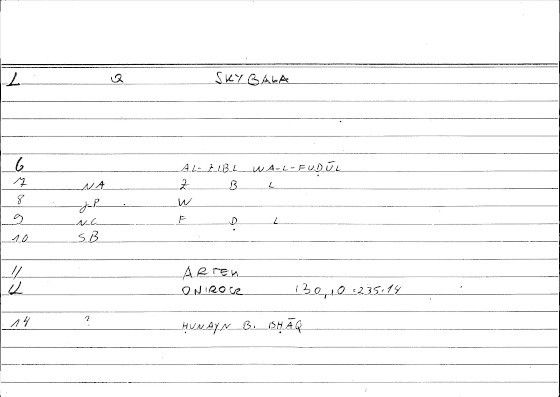 1 Q SKYBALA
6 AL-ZIBL WA-L-FUḌŪL
7 NA Z B L
8 JP W
9 NC F Ḍ L
10 SB
11 ARTEM
12 ONIROCR 130,10 = 235.14
14 ? ḤUNAYN B. ISḤĀQ